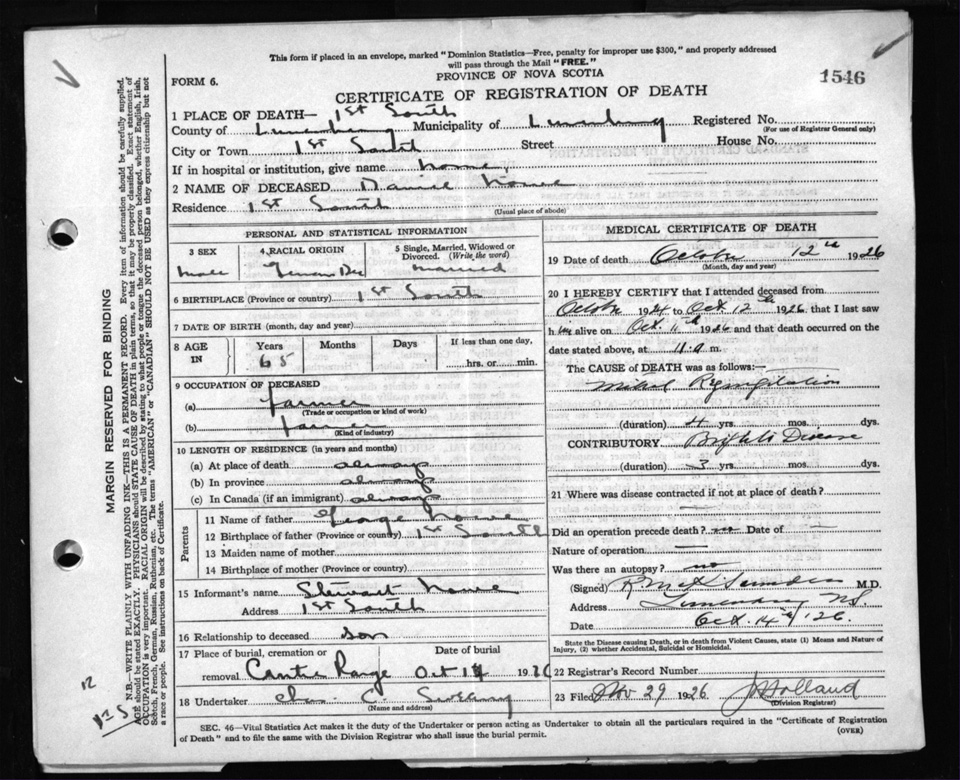 This form if placed in an envelope, marked "Dominion Statistics—Free, penalty for improper use $300," and properly addressed
will pass through the Mail "FREE."
PROVINCE OF NOVA SCOTIA
FORM 6.
1546
CERTIFICATE OF REGISTRATION OF DEATH
1 PLACE OF DEATH— 1st South
County of Lunenburg Municipality of Lunenburg Registered No.
(For use of Registrar General only)
City or Town 1st South Street House No.
If in hospital or institution, give name home
2 NAME OF DECEASED
Residence 1st South
(Usual place of abode)
PERSONAL AND STATISTICAL INFORMATION
3 SEX 4. RACIAL ORIGIN 5 Single, Married, Widowed or
Divorced. (Write the word)
Male married
6 BIRTHPLACE (Province or country) 1st South
7 DATE OF BIRTH (month, day and year)
8 AGE IN Years Months Days If less than one day,
65 hrs. or min.
9 OCCUPATION OF DECEASED
(a) farmer
(Trade or occupation or kind of work)
(b) farmer
(Kind of industry)
10 LENGTH OF RESIDENCE (in years and months)
(a) At place of death always
(b) In province always
(c) In Canada (if an immigrant) always
Parents
11 Name of father George
12 Birthplace of father (Province or country) 1st South
13 Maiden name of mother
14 Birthplace of mother (Province or country)
15 Informant's name Stewart
Address 1st South
16 Relationship to deceased son
17 Place of burial, cremation or Date of burial
removal Oct 1926
18 Undertaker C.
(Name and address)
MEDICAL CERTIFICATE OF DEATH
19 Date of death October 12th 1926
(Month, day and year)
20 I HEREBY CERTIFY that I attended deceased from
October 1924 to Oct 12th 1926 that I last saw
him alive on Oct. 11th 1926 and that death occurred on the
date stated above, at 11.a m.
The CAUSE of DEATH was as follows:—
Mitral Regurgitation
(duration) 4 yrs. mos. dys.
CONTRIBUTORY. Bright's Disease
(duration) 3 yrs. mos. dys.
21 Where was disease contracted if not at place of death?
—
Did an operation precede death? no Date of —
Nature of operation —
Was there an autopsy? no
(Signed) M.D.
Address Lunenburg N.S.
Date Oct. 14th /26.
State the Disease causing Death, or in death from Violent Causes, state (1) Means and Nature of
Injury, (2) whether Accidental, Suicidal or Homicidal.
22 Registrar's Record Number
23 Filed Nov 29 1926 J Holland
(Division Registrar)
SEC. 46—Vital Statistics Act makes it the duty of the Undertaker or person acting as Undertaker to obtain all the particulars required in the "Certificate of Registration
of Death" and to file the same with the Division Registrar who shall issue the burial permit.
(OVER)
MARGIN RESERVED FOR BINDING
N.B.—WRITE PLAINLY WITH UNFADING INK—THIS IS A PERMANENT RECORD. Every item of information should be carefully supplied.
AGE should be stated EXACTLY. PHYSICIANS should STATE CAUSE OF DEATH in plain terms, so that it may be properly classified. Exact statement of
OCCUPATION is very important. RACIAL ORIGIN will be described by stating to what people or tongue the deceased person belonged, whether English, Irish,
Scotch, French, German, Russian, Ruthenian, etc. The terms "AMERICAN" or "CANADIAN" SHOULD NOT BE USED as they express citizenship but not
a race or people. See instructions on back of Certificate.
12